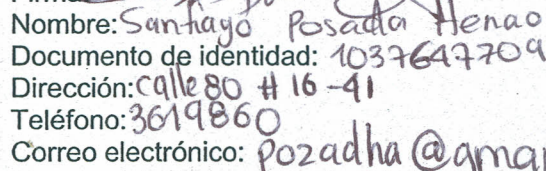 Nombre: Santiago Posada Henao
Documento de identidad: 1037647709
Dirección: calle 80 # 16-41
Teléfono: 3619860
Correo electrónico: pozadha@gmai